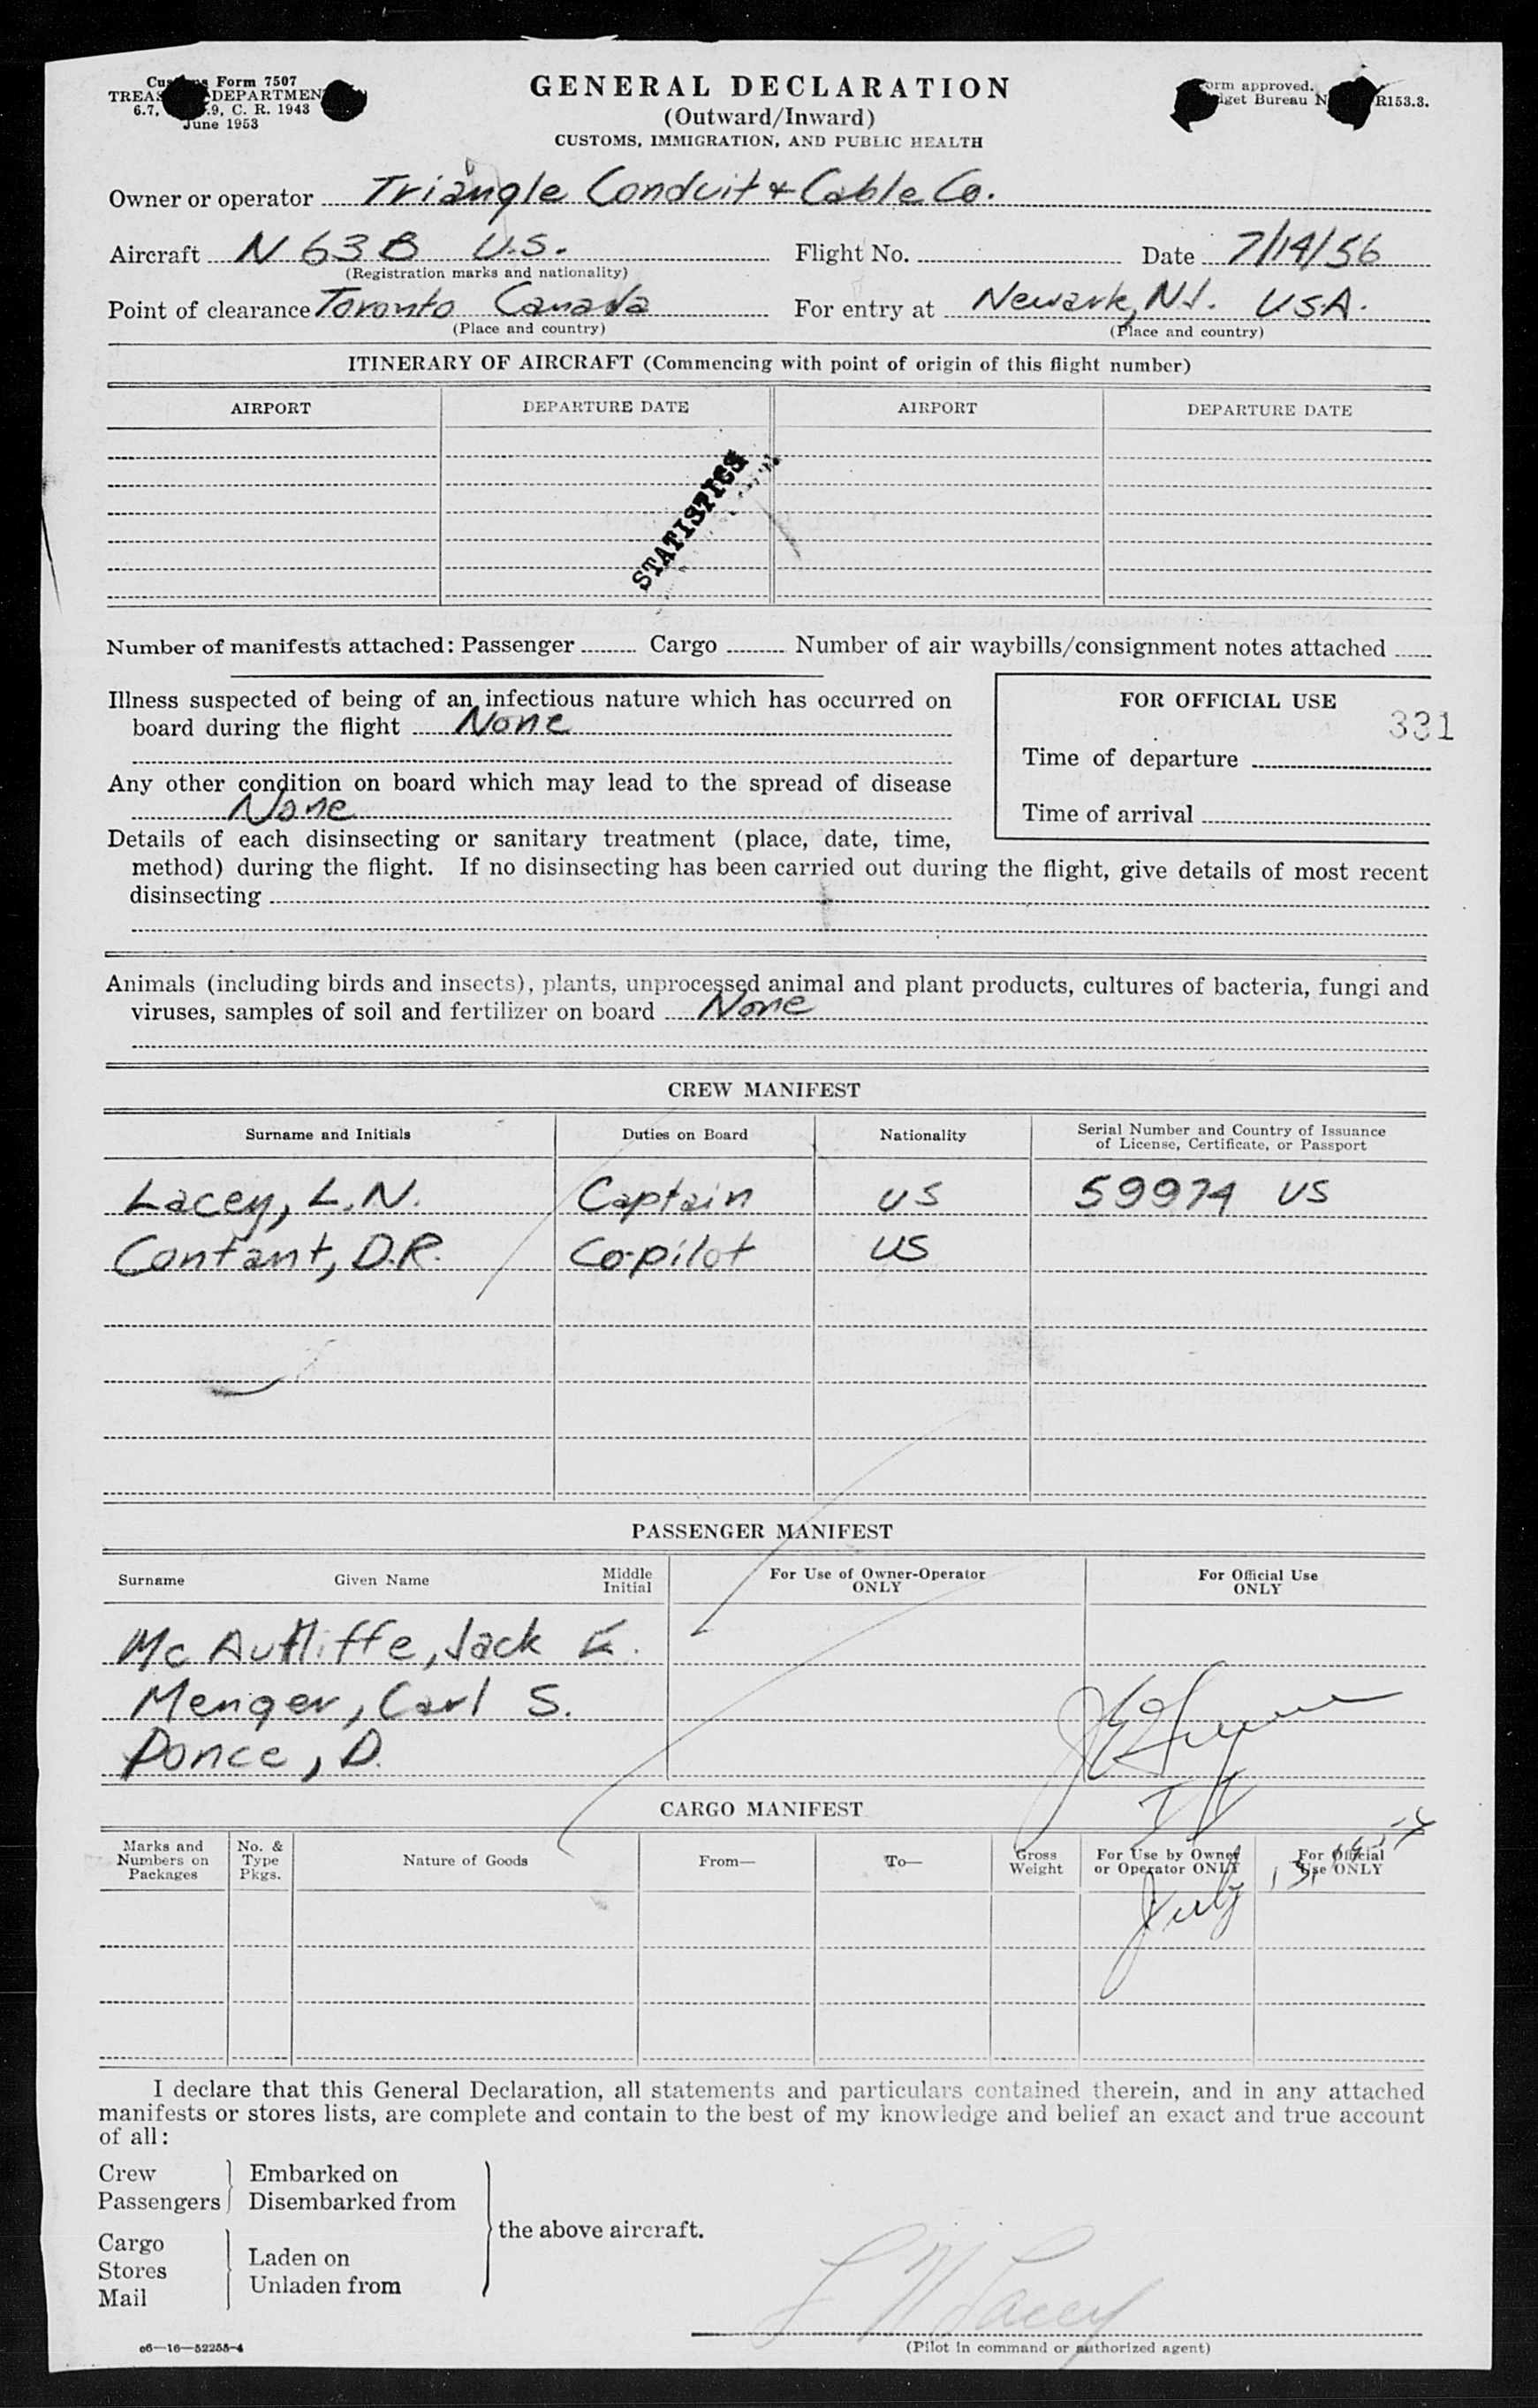 Customs Form 7507
TREASURY DEPARTMENT
6.7, .9, C. R. 1943
June 1953
GENERAL DECLARATION
(Outward/Inward)
CUSTOMS, IMMIGRATION, AND PUBLIC HEALTH
Form approved.
Budget Bureau N R153.3.
Owner or operator Triangle Conduit & Cable Co.
Aircraft N 63B U.S. Flight No. Date 7/14/56
(Registration marks and nationality)
Point of clearance Toronto Canada For entry at Newark, N.J. USA.
(Place and country) (Place and country)
ITINERARY OF AIRCRAFT (Commencing with point of origin of this flight number)
AIRPORT DEPARTURE DATE AIRPORT DEPARTURE DATE
STATISTICS
Number of manifests attached: Passenger Cargo Number of air waybills/consignment notes attached
Illness suspected of being of an infectious nature which has occurred on
board during the flight None
FOR OFFICIAL USE
331
Time of departure
Any other condition on board which may lead to the spread of disease
None
Time of arrival
Details of each disinsecting or sanitary treatment (place, date, time,
method) during the flight. If no disinsecting has been carried out during the flight, give details of most recent
disinsecting
Animals (including birds and insects), plants, unprocessed animal and plant products, cultures of bacteria, fungi and
viruses, samples of soil and fertilizer on board None
CREW MANIFEST
Surname and Initials Duties on Board Nationality Serial Number and Country of Issuance
of License, Certificate, or Passport
Lacey, L.N. Captain US 59974 US
Contant, D.R. Co-pilot US
PASSENGER MANIFEST
Surname Given Name Middle Initial For Use of Owner-Operator ONLY For Official Use ONLY
Mc Autliffe, Jack E.
Menger, Carl S.
Ponce, D.
CARGO MANIFEST
Marks and Numbers on Packages No. & Type Pkgs. Nature of Goods From— To— Gross Weight For Use by Owner or Operator ONLY For Official Use ONLY
July
I declare that this General Declaration, all statements and particulars contained therein, and in any attached
manifests or stores lists, are complete and contain to the best of my knowledge and belief an exact and true account
of all:
Crew Embarked on
Passengers Disembarked from
the above aircraft.
Cargo
Stores Laden on
Mail Unladen from
L N Lacey
(Pilot in command or authorized agent)
c6—16—52255-4